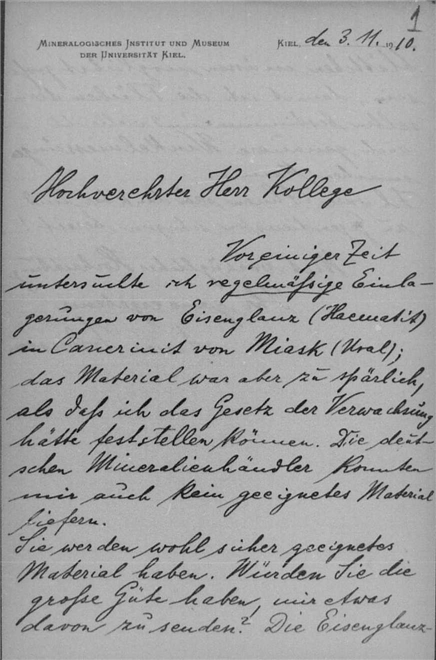 1
Mineralogisches Institut und Museum
der Universität Kiel.
Kiel, den 3. 11. 1910.
Hochverehrter Herr Kollege
Vor einiger Zeit
untersuchte ich regelmäßige Einla-
gerungen von Eisenglanz (Haematit)
in Cancrinit von Miask (Ural);
das Material war aber zu spärlich,
als daß ich das Gesetz der Verwachsung
hätte feststellen können. Die deut-
schen Mineralienhändler konnten
mir auch kein geeignetes Material
liefern.
Sie werden wohl sicher geeignetes
Material haben. Würden Sie die
große Güte haben, mir etwas
davon zu senden? Die Eisenglanz-